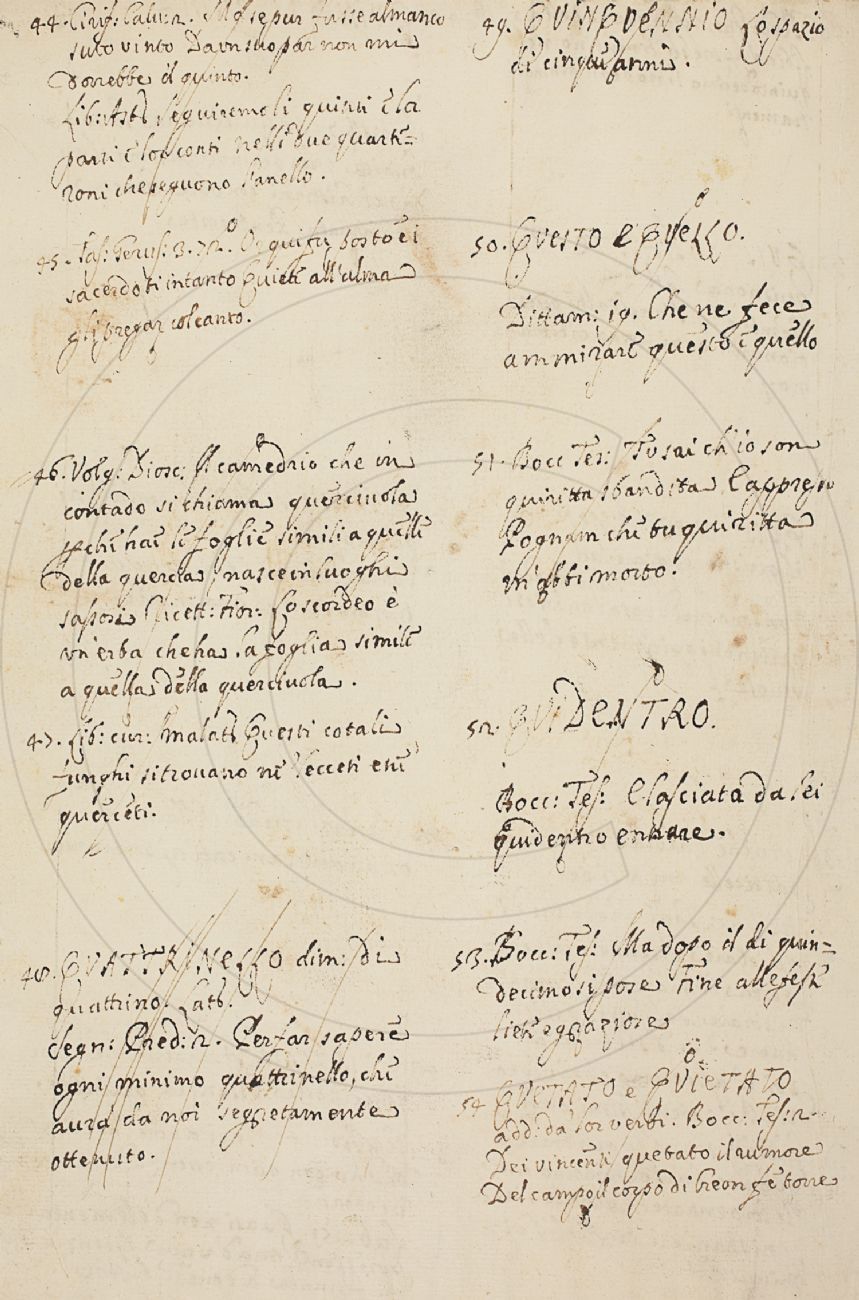 44. Cirif: Calu: 2. Mosse pur fusse almanco
suto vinto Da un suo par non mi
Dorrebbe il quinto.
Lib: Astr. seguiremoli quinti e la
parti e lor conti nelli due quarte=
roni che seguono sanello.
45. Tass: Gerus: 3. 72. Or qui fu posto e i
sacerdoti intanto Quieti all'alma
gli pregar col canto.
46. Volg: Diosc: Il camedrio che in
contado si chiama querciuola
pchè hae le foglie simili a quelle
della quercia, nasce in luoghi
sassosi Ricett: Fior: Lo scordeo è
un'erba che ha la foglia simile
a quella della querciuola.
47. Lib: cur: malatt: Questi cotali
funghi si trovano ne' lecceti e ne'
querceti.
48. QUATTRINELLO dim: Di
quattrino. Lat:
Segn: Pred: 2. Per far sapere
ogni minimo quattrinello, che
aura da noi segretamente
ottenuto.
49. QUINQUENNIO Lo spazio
di cinqu'anni.
50. QUESTO e QUELLO.
Dittam: 19. Che ne fece
ammirare questo e quello
51. Bocc Tes: Tu sai ch'io son
quiritta sbandita E appresso
Pognam che tu quiritta
m'abbi morto.
52. QUIDENTRO.
Bocc: Tes: E lasciata da lei
quidentro entrare.
53. Bocc: Tes: Ma dopo il di quin=
decimo si pose Fine alle feste
liete e graziose
54 QUETATO e QUIETATO
add: da lor verbi. Bocc: Tes: 2
Dei vincenti quetato il rumore
Del campo il corpo di Creon fe torre